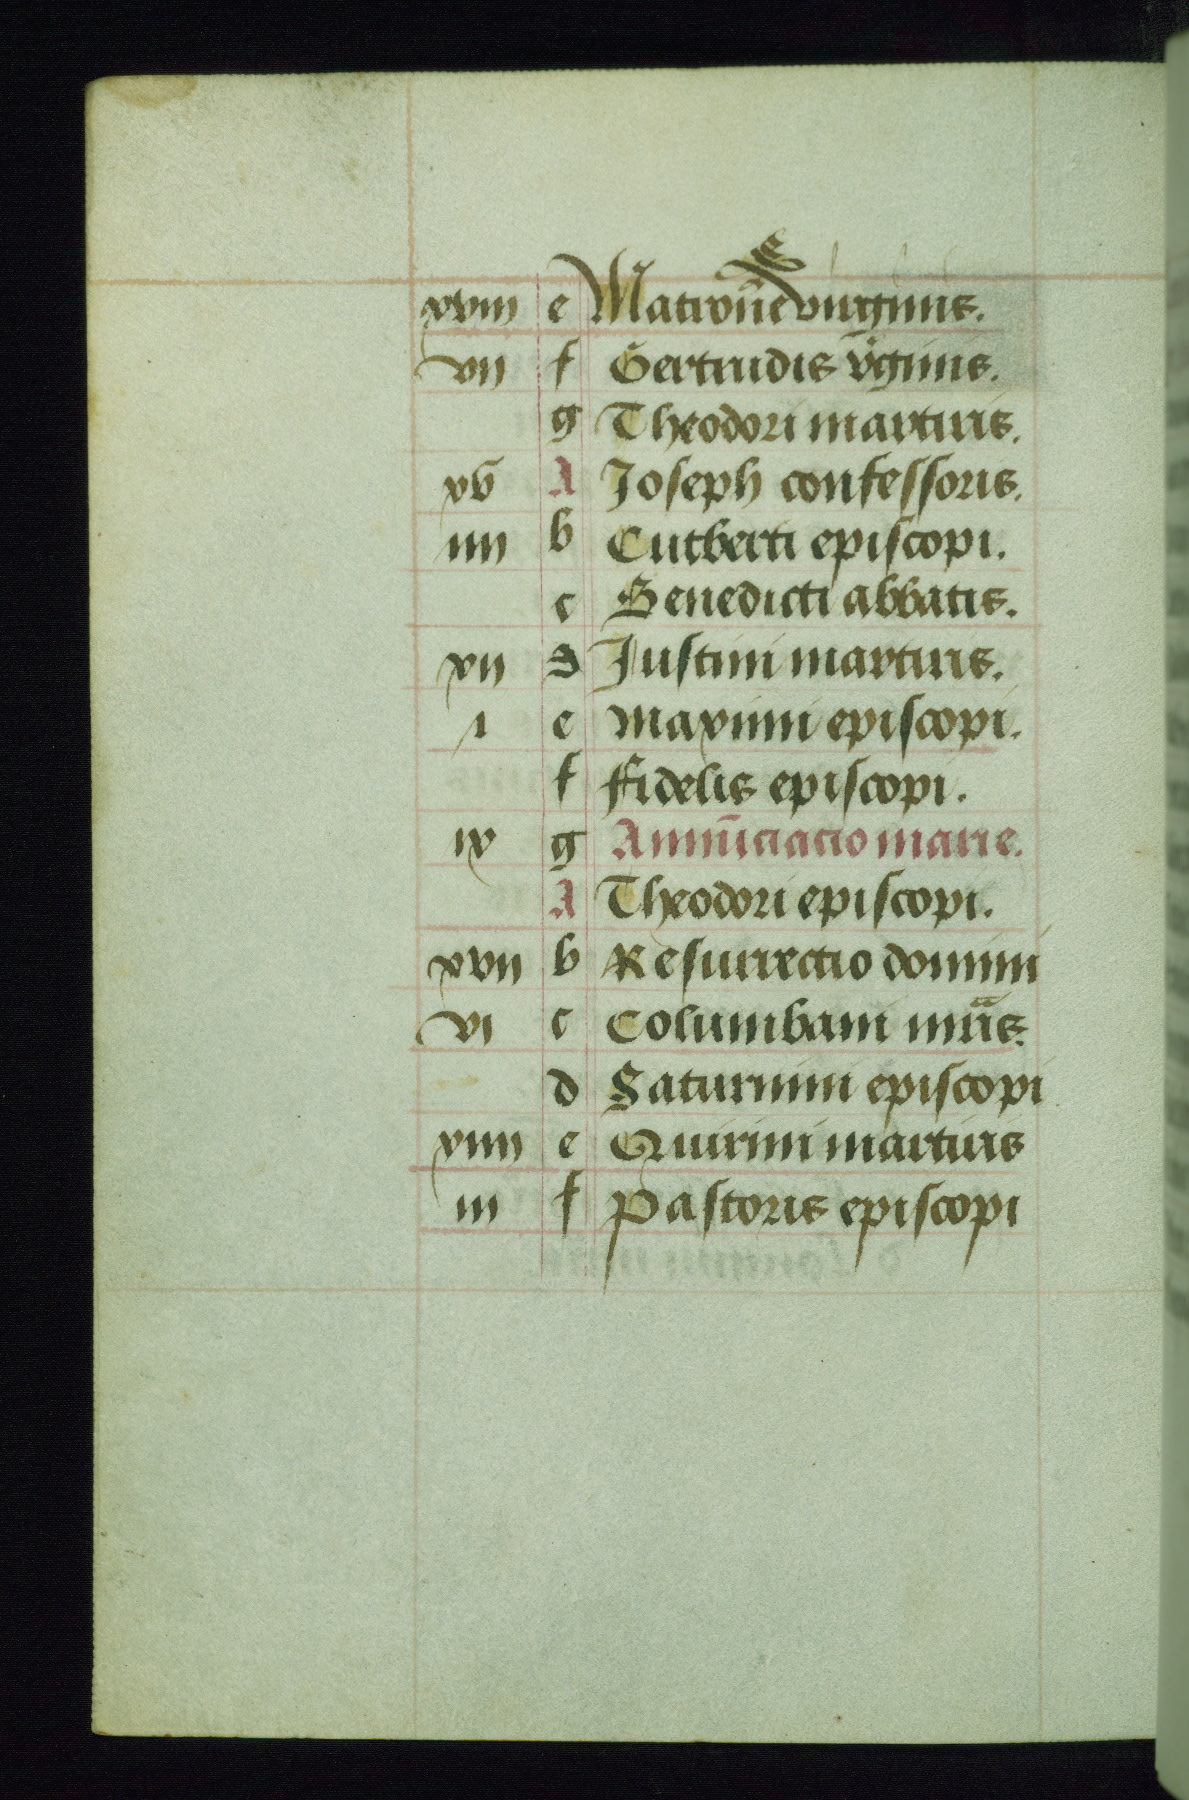 xviii e Matron̄e virginis.
vii f Gertrudis v̊ginis.
g Theodori martiris.
xv A Joseph confessoris.
iiii b Cutberti episcopi.
c Benedicti abbatis.
xii d Justini martiris.
i e Maximi episcopi.
f Fidelis episcopi.
ix g Annūciacio marie.
A Theodori episcopi.
xvii b Resurrectio domini
vi c Columbani mr̄is.
d Saturnini episcopi
xiiii e Quirini martiris
iii f Pastoris episcopi